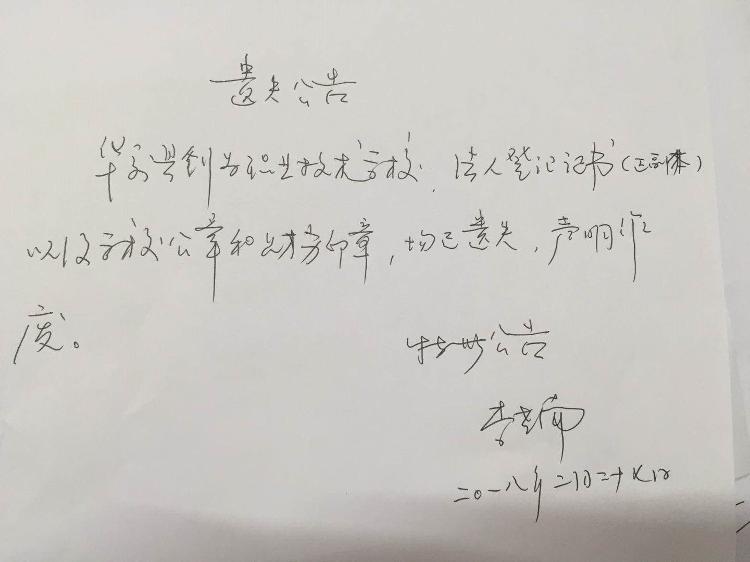 遗失公告
职业技术学校，法人登记证书（正副本）
以及学校公章和财务印章，均已遗失，声明作
废。
特此公告
李
二〇一八年二月二十 日